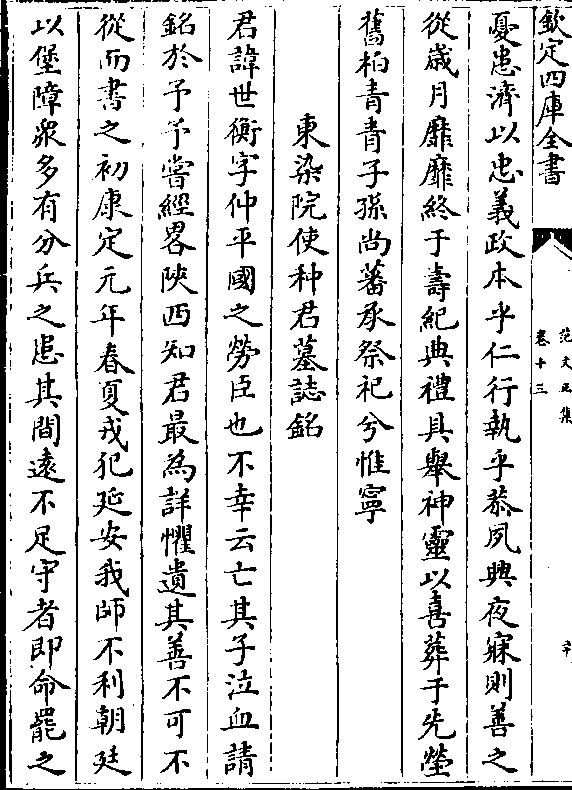 欽定四庫全書
范文正集
卷十三
憂患濟以忠義政本乎仁行執乎恭夙興夜寐則善之
從歳月靡靡終于壽紀典禮具舉神靈以喜葬于先塋
舊柏青青子孫尚蕃承祭祀兮惟寧
東染院使种君墓誌銘
君諱世衡字仲平國之勞臣也不幸云亡其子泣血請
銘於予予嘗經畧陜西知君最為詳懼遺其善不可不
從而書之初康定元年春夏戎犯延安我師不利朝廷
以堡障衆多有分兵之患其間逺不足守者即命罷之